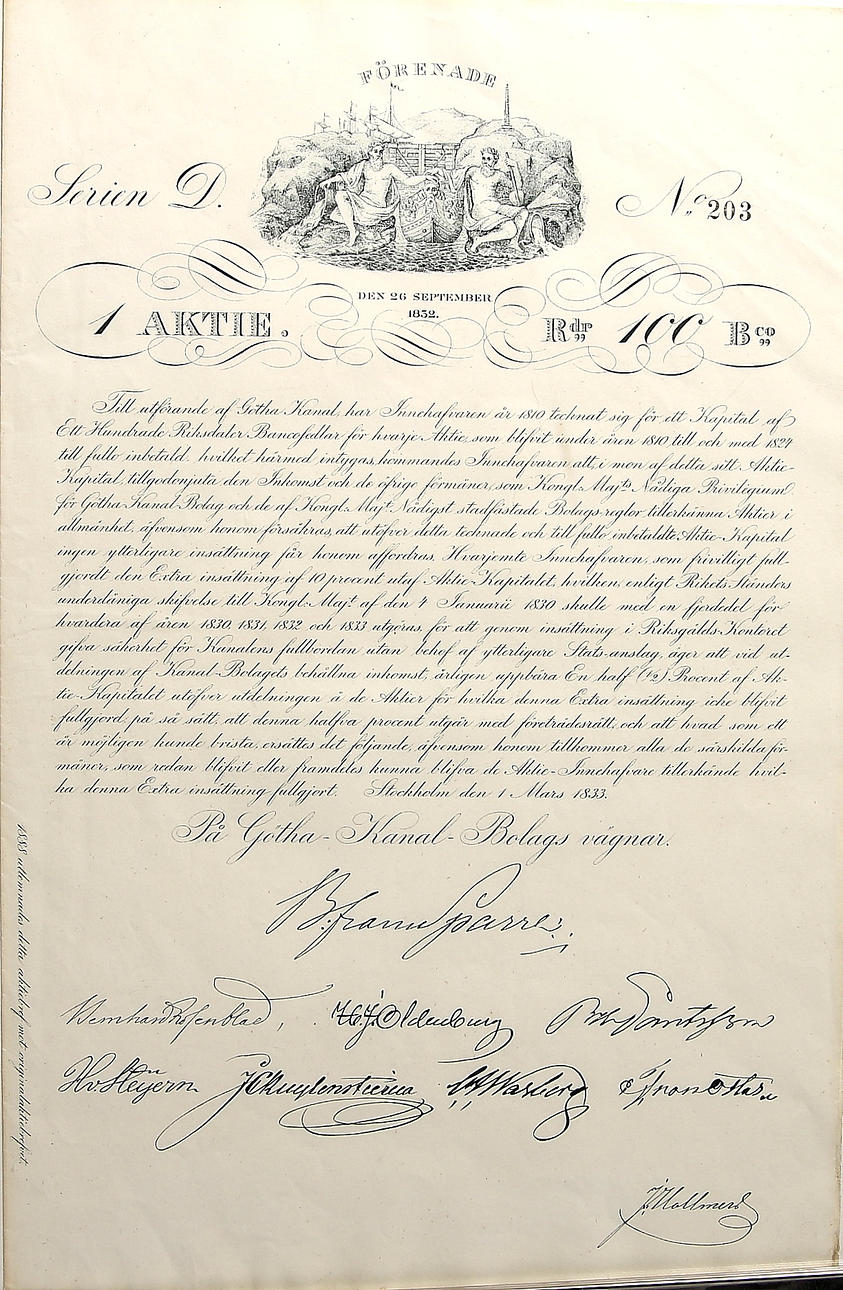 FÖRENADE
Serien D.
No 203
DEN 26 SEPTEMBER
1832.
1 AKTIE.
Rdr 100 Bco
Till utförande af Götha Kanal, har Innehafvaren år 1810 tecknat sig för ett Kapital af
Ett Hundrade Riksdaler Bancosedlar för hvarje Aktie, som blifvit under åren 1810 till och med 1824
till fullo inbetald, hvilket härmed intygas, kommandes Innehafvaren att, i mon af detta sitt Aktie-
Kapital, tillgodonjuta den Inkomst och de öfrige förmåner, som Kongl. Majts Nådiga Privilegium
för Götha Kanal Bolag och de af Kongl. Majt Nådigst stadfästade Bolags-reglor tillerkänna Aktier i
allmänhet, äfvensom honom försäkras, att utöfver detta tecknade och till fullo inbetaldte Aktie-Kapital
ingen ytterligare insättning får honom affordras. Hvarjemte Innehafvaren, som frivilligt full-
gjordt den Extra insättning af 10 procent utaf Aktie-Kapitalet, hvilken, enligt Rikets Ständers
underdåniga skrifvelse till Kongl. Majt af den 4 Januarii 1830 skulle med en fjerdedel för
hvardera af åren 1830, 1831, 1832 och 1833 utgöras, för att genom insättning i Riksgälds-Kontoret
gifva säkerhet för Kanalens fullbordan utan behof af ytterligare Stats-anslag, äger att vid ut-
delningen af Kanal-Bolagets behållna inkomst, årligen uppbära En half (1/2) Procent af Ak-
tie-Kapitalet utöfver utdelningen å de Aktier för hvilka denna Extra insättning icke blifvit
fullgjord, på så sätt, att denna halfva procent utgår med företrädesrätt, och att hvad som ett
år möjligen kunde brista, ersättes det följande, äfvensom honom tillkommer alla de särskilda för-
måner, som redan blifvit eller framdeles kunna blifva de Aktie-Innehafvare tillerkände hvil-
ka denna Extra insättning fullgjort. Stockholm den 1 Mars 1833.
På Götha-Kanal-Bolags vägnar.
B. Franc Sparre
Bernhard Rosenblad, H. J. Oldenburg
Hv. Heijern J C Kuylenstierna Warberg
1888 utlemnades detta aktiebref mot originalaktiebrefvet.